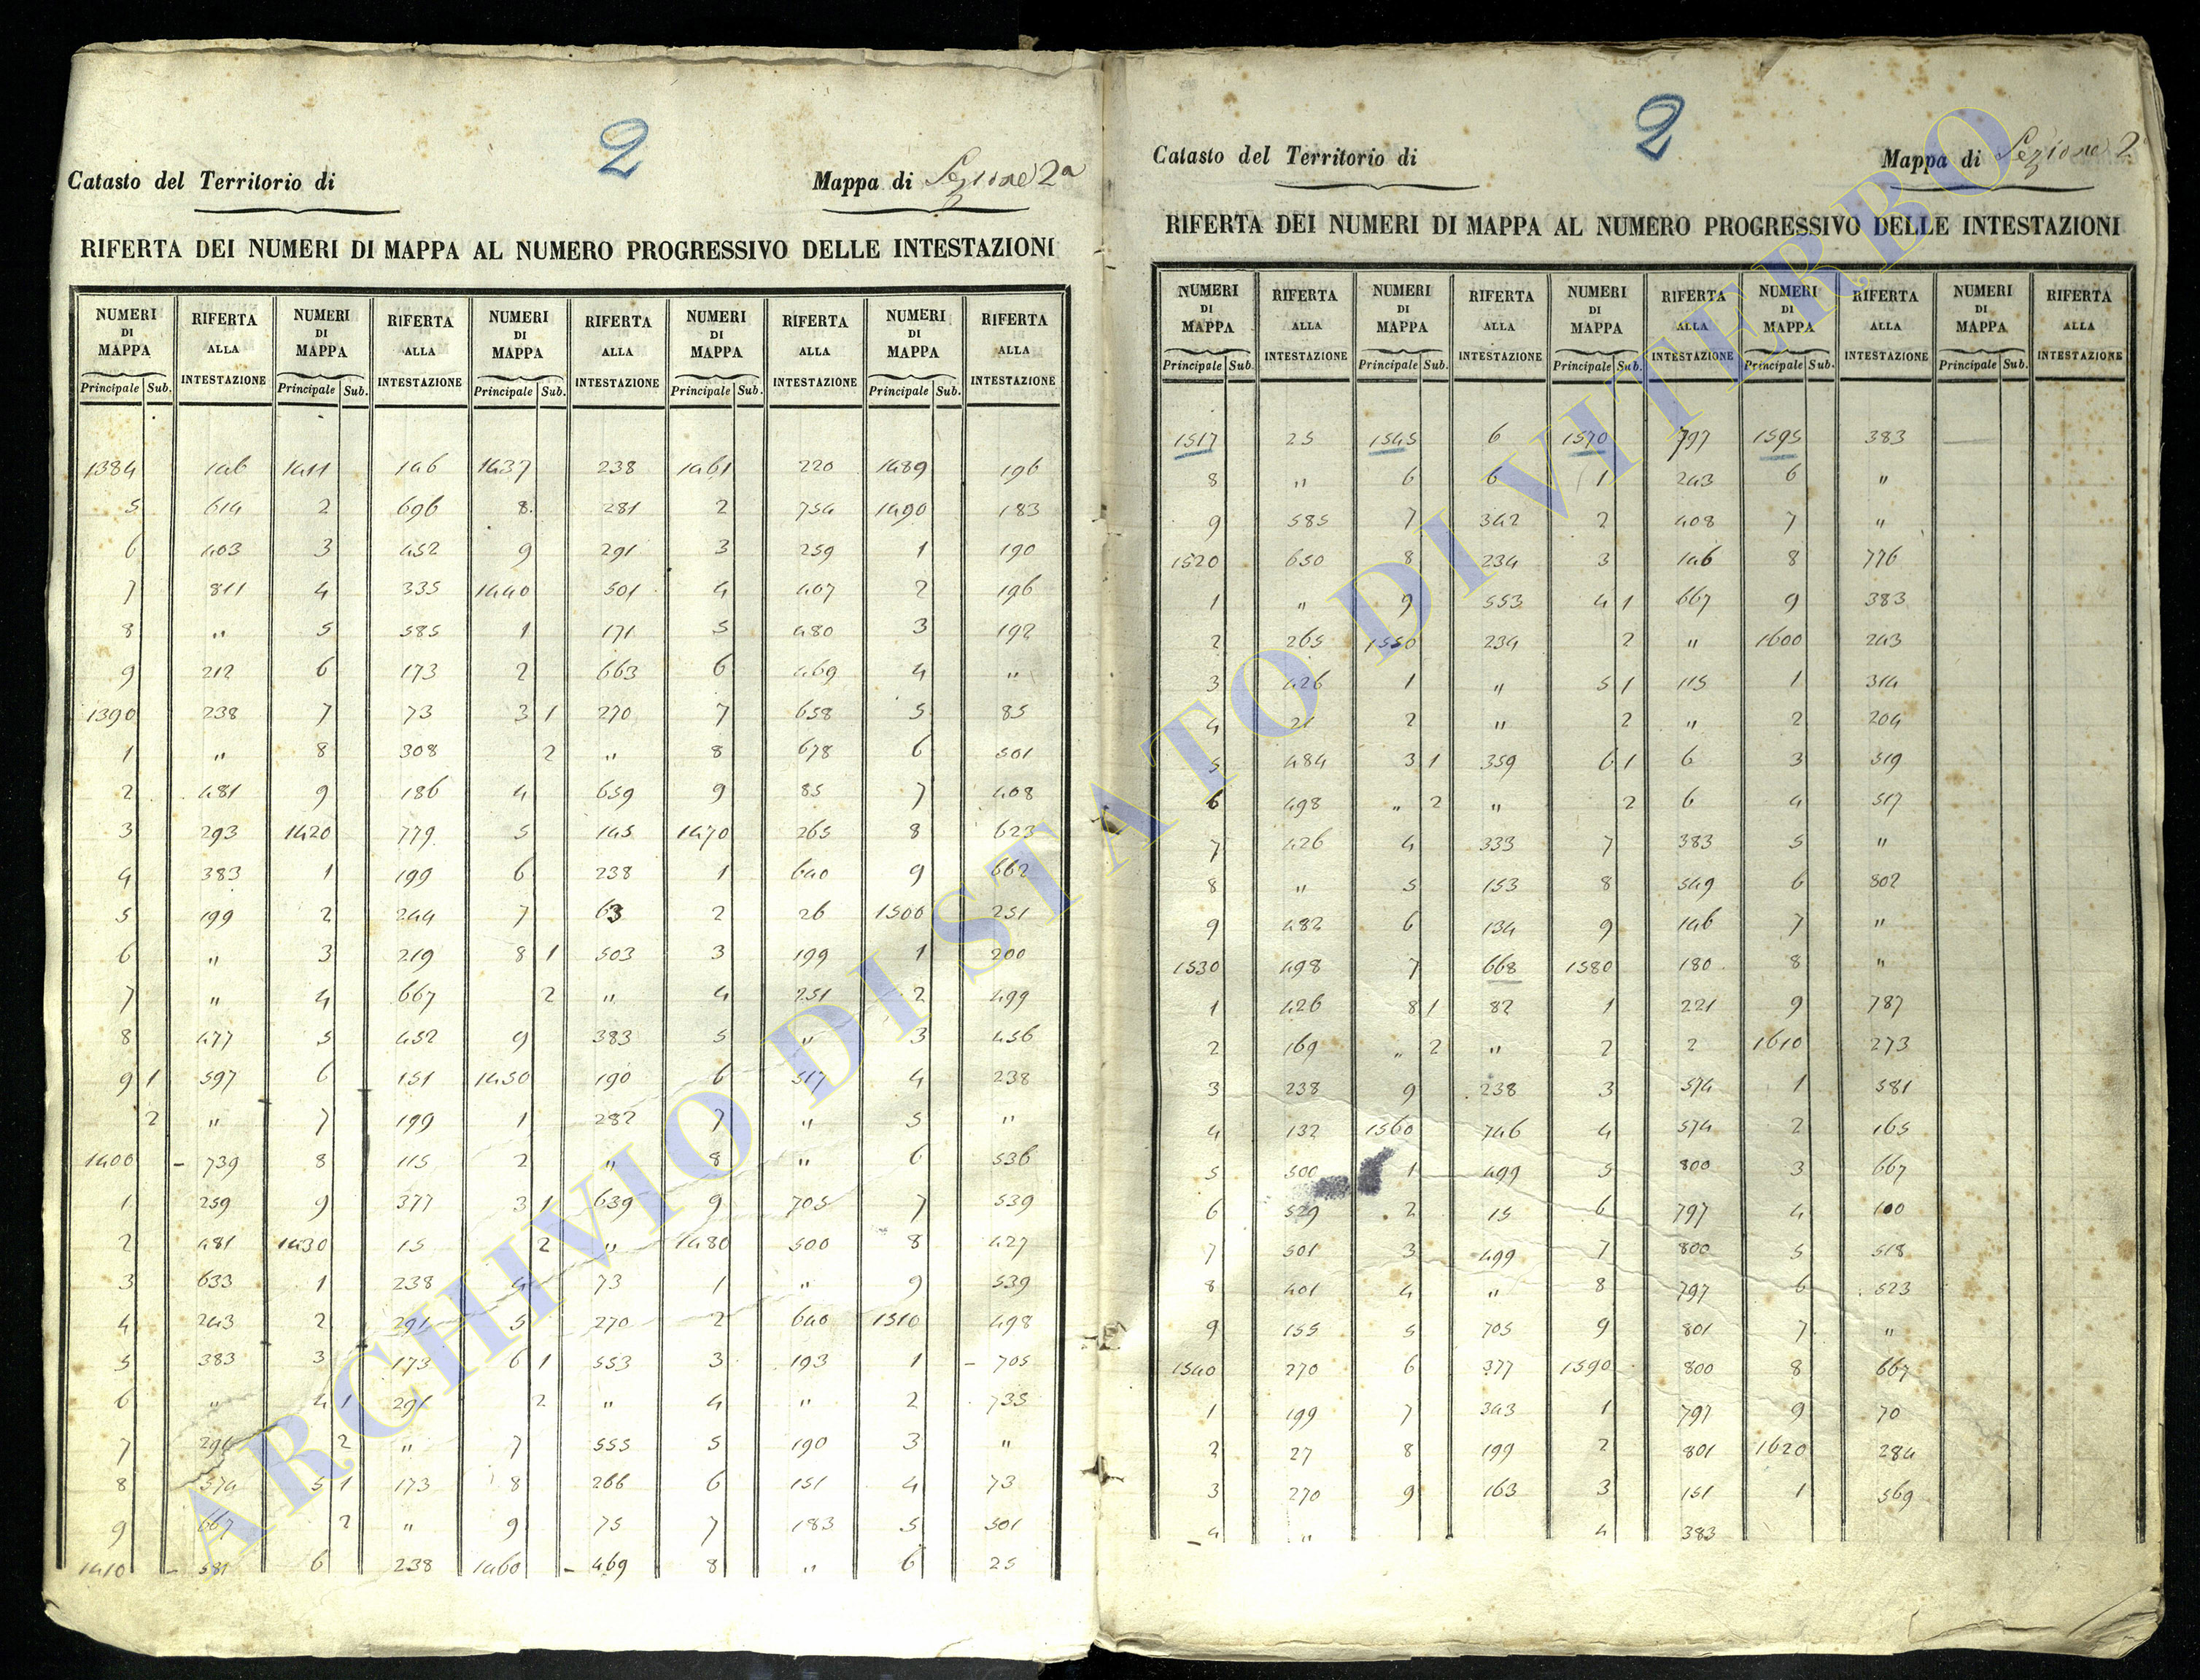 2
Catasto del Territorio di Mappa di Sezione 2a
RIFERTA DEI NUMERI DI MAPPA AL NUMERO PROGRESSIVO DELLE INTESTAZIONI
NUMERI DI MAPPA RIFERTA ALLA INTESTAZIONE NUMERI DI MAPPA RIFERTA ALLA INTESTAZIONE NUMERI DI MAPPA RIFERTA ALLA INTESTAZIONE NUMERI DI MAPPA RIFERTA ALLA INTESTAZIONE NUMERI DI MAPPA RIFERTA ALLA INTESTAZIONE
Principale Sub. Principale Sub. Principale Sub. Principale Sub. Principale Sub.
1384 146 1411 146 1437 238 1461 220 1489 196
5 614 2 696 8 281 2 754 1490 183
6 403 3 452 9 291 3 259 1 190
7 811 4 335 1440 501 4 407 2 196
8 " 5 585 1 171 5 480 3 192
9 212 6 173 2 663 6 469 4 "
1390 238 7 73 3 1 270 7 658 5 85
1 " 8 308 2 " 8 678 6 501
2 481 9 186 4 659 9 85 7 408
3 293 1420 779 5 145 1470 265 8 623
4 383 1 199 6 238 1 640 9 662
5 199 2 244 7 63 2 26 1500 251
6 " 3 219 8 1 503 3 199 1 200
7 " 4 667 2 " 4 251 2 499
8 477 5 452 9 383 5 " 3 456
9 1 597 6 151 1450 190 6 517 4 238
2 " 7 199 1 282 7 " 5 "
1400 - 739 8 115 2 " 8 " 6 536
1 259 9 377 3 1 639 9 705 7 539
2 481 1430 15 2 " 1480 500 8 427
3 633 1 238 4 73 1 " 9 539
4 243 2 291 5 270 2 640 1510 498
5 383 3 173 6 1 553 3 193 1 - 705
6 " 4 1 291 2 " 4 " 2 735
7 291 2 " 7 555 5 190 3 "
8 574 5 1 173 8 266 6 151 4 73
9 667 2 " 9 75 7 183 5 501
1410 - 581 6 238 1460 - 469 8 " 6 25
2
Catasto del Territorio di Mappa di Sezione 2
RIFERTA DEI NUMERI DI MAPPA AL NUMERO PROGRESSIVO DELLE INTESTAZIONI
NUMERI DI MAPPA RIFERTA ALLA INTESTAZIONE NUMERI DI MAPPA RIFERTA ALLA INTESTAZIONE NUMERI DI MAPPA RIFERTA ALLA INTESTAZIONE NUMERI DI MAPPA RIFERTA ALLA INTESTAZIONE NUMERI DI MAPPA RIFERTA ALLA INTESTAZIONE
Principale Sub. Principale Sub. Principale Sub. Principale Sub. Principale Sub.
1517 25 1545 6 1570 797 1595 383
8 " 6 6 1 243 6 "
9 585 7 342 2 408 7 "
1520 650 8 234 3 146 8 776
1 " 9 553 4 1 667 9 383
2 265 1550 234 2 " 1600 243
3 426 1 " 5 1 115 1 314
4 21 2 " 2 " 2 204
5 484 3 1 359 6 1 6 3 519
6 498 " 2 " 2 6 4 517
7 426 4 333 7 383 5 "
8 " 5 153 8 549 6 802
9 482 6 134 9 146 7 "
1530 498 7 668 1580 180 8 "
1 426 8 1 82 1 221 9 787
2 169 " 2 " 2 2 1610 273
3 238 9 238 3 574 1 581
4 132 1560 746 4 574 2 165
5 500 1 499 5 800 3 667
6 529 2 15 6 797 4 100
7 501 3 499 7 800 5 518
8 401 4 " 8 797 6 523
9 155 5 705 9 801 7 "
1540 270 6 377 1590 800 8 667
1 199 7 343 1 797 9 70
2 27 8 199 2 801 1620 284
3 270 9 163 3 151 1 569
4 " 4 383
ARCHIVIO DI STATO DI VITERBO